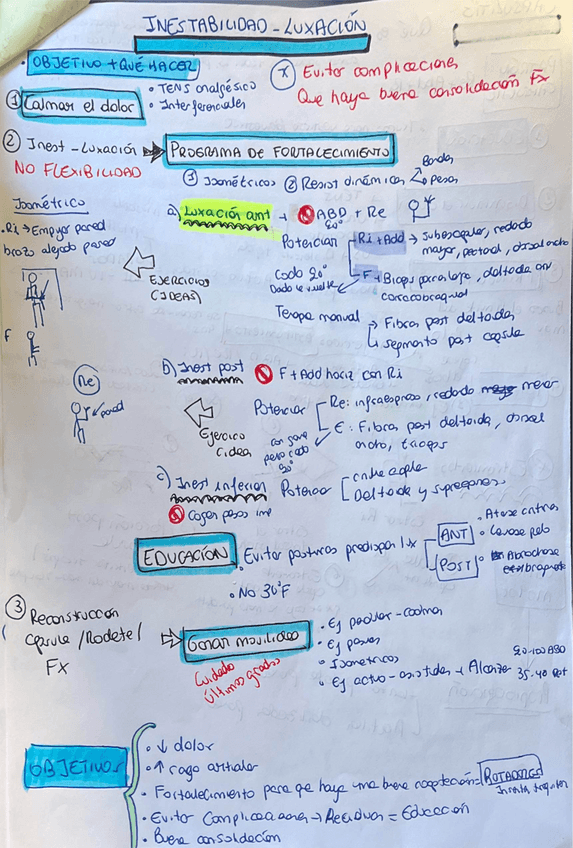 INESTABILIDAD - LUXACIÓN
• OBJETIVO + QUÉ HACER
(*) Evitar complicaciones
Que haya buena consolidación Fx
① Calmar el dolor
• TENS analgésico
• Interferenciales
② Inest - Luxación → PROGRAMA DE FORTALECIMIENTO
NO FLEXIBILIDAD
① Isométricos ② Resist dinámica
Bandas
Pesas
Isométrico
• Ri → Empujar pared
brazo alejado pared
a) Luxación ant + ABD + Re
90°
Potenciar
Ri + Add → Subescapular, redondo
mayor, pectoral, dorsal ancho
Codo 90°
F → Biceps porx larga, deltoide ant
coracobraquial
EJERCICIOS
(IDEAS)
Terapia manual
→ Fibras post deltoides
↳ segmento post capsula
F
b) Inest post F + Add horiz con Ri
Re
pared
Potenciar
Re: infraespinoso, redondo menor
E: Fibras post deltoide, dorsal
ancho, triceps
Ejercicio
(idea)
codo
90°
c) Inest inferior Potenciar
Deltoide y supraespinoso
Coger pesos
EDUCACIÓN • Evitar posturas predispon lx
ANT
POST
• No 30° F
③ Reconstrucción
Capsula / Rodete /
Fx
⇒ Ganar movilidad
Cuidado
últimos grados
• Ej pasivos
• Isometricos
• Ej activo-asistidos + Alcanzar 35-40 Rot
90-100 ABD
OBJETIVOS
• ↓ dolor
• ↑ rago articular
• Fortalecimiento para que haya una buena coaptación = ROTADORES
• Evitar Complicaciones → Recidivas = Educación
• Buena consolidación